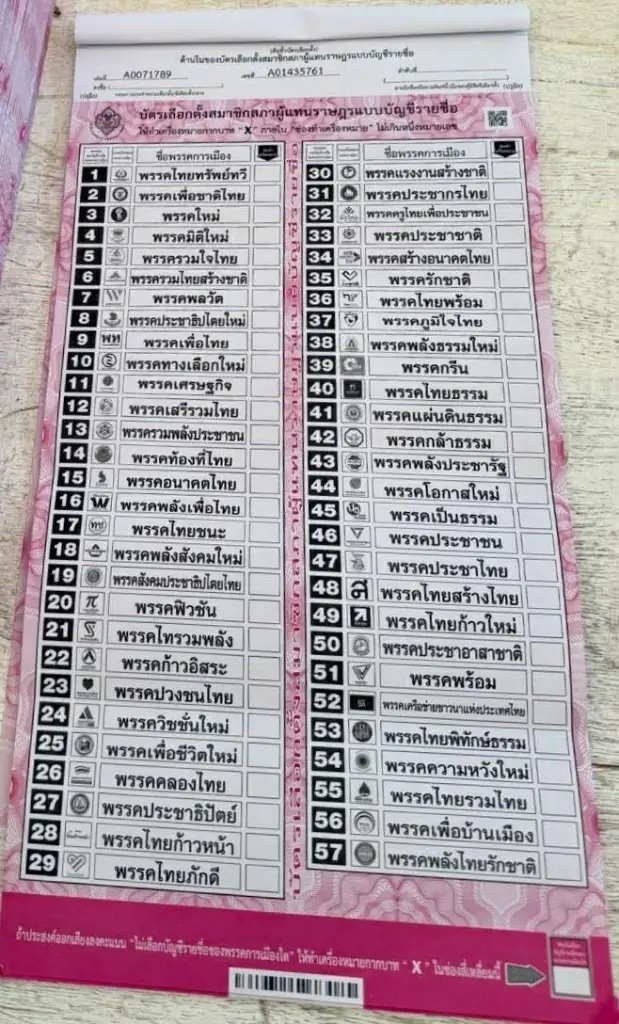 (ต้นขั้วบัตรเลือกตั้ง)
ด้านในของบัตรเลือกตั้งสมาชิกสภาผู้แทนราษฎรแบบบัญชีรายชื่อ
เล่มที่ A0071789 เลขที่ A01435761 ลำดับที่
บัตรเลือกตั้งสมาชิกสภาผู้แทนราษฎรแบบบัญชีรายชื่อ
ให้ทำเครื่องหมายกากบาท "X" ภายใน "ช่องทำเครื่องหมาย" ไม่เกินหนึ่งหมายเลข
ชื่อพรรคการเมือง
1 พรรคไทยทรัพย์ทวี
2 พรรคเพื่อชาติไทย
3 พรรคใหม่
4 พรรคมิติใหม่
5 พรรครวมใจไทย
6 พรรครวมไทยสร้างชาติ
7 พรรคพลวัต
8 พรรคประชาธิปไตยใหม่
9 พท พรรคเพื่อไทย
10 พรรคทางเลือกใหม่
11 พรรคเศรษฐกิจ
12 พรรคเสรีรวมไทย
13 พรรครวมพลังประชาชน
14 พรรคท้องที่ไทย
15 พรรคอนาคตไทย
16 พรรคพลังเพื่อไทย
17 ทช พรรคไทยชนะ
18 พรรคพลังสังคมใหม่
19 พรรคสังคมประชาธิปไตยไทย
20 พรรคฟิวชัน
21 พรรคไทรวมพลัง
22 พรรคก้าวอิสระ
23 พรรคปวงชนไทย
24 พรรควิชชั่นใหม่
25 พรรคเพื่อชีวิตใหม่
26 พรรคคลองไทย
27 พรรคประชาธิปัตย์
28 พรรคไทยก้าวหน้า
29 พรรคไทยภักดี
ชื่อพรรคการเมือง
30 พรรคแรงงานสร้างชาติ
31 พรรคประชากรไทย
32 พรรคครูไทยเพื่อประชาชน
33 พรรคประชาชาติ
34 พรรคสร้างอนาคตไทย
35 พรรครักชาติ
36 พรรคไทยพร้อม
37 พรรคภูมิใจไทย
38 พรรคพลังธรรมใหม่
39 พรรคกรีน
40 พรรคไทยธรรม
41 พรรคแผ่นดินธรรม
42 พรรคกล้าธรรม
43 พรรคพลังประชารัฐ
44 พรรคโอกาสใหม่
45 พรรคเป็นธรรม
46 พรรคประชาชน
47 พรรคประชาไทย
48 พรรคไทยสร้างไทย
49 พรรคไทยก้าวใหม่
50 พรรคประชาอาสาชาติ
51 พรรคพร้อม
52 พรรคเครือข่ายชาวนาแห่งประเทศไทย
53 พรรคไทยพิทักษ์ธรรม
54 พรรคความหวังใหม่
55 พรรคไทยรวมไทย
56 พรรคเพื่อบ้านเมือง
57 พรรคพลังไทยรักชาติ
ถ้าประสงค์ออกเสียงลงคะแนน "ไม่เลือกบัญชีรายชื่อของพรรคการเมืองใด" ให้ทำเครื่องหมายกากบาท "X" ในช่องสี่เหลี่ยมนี้